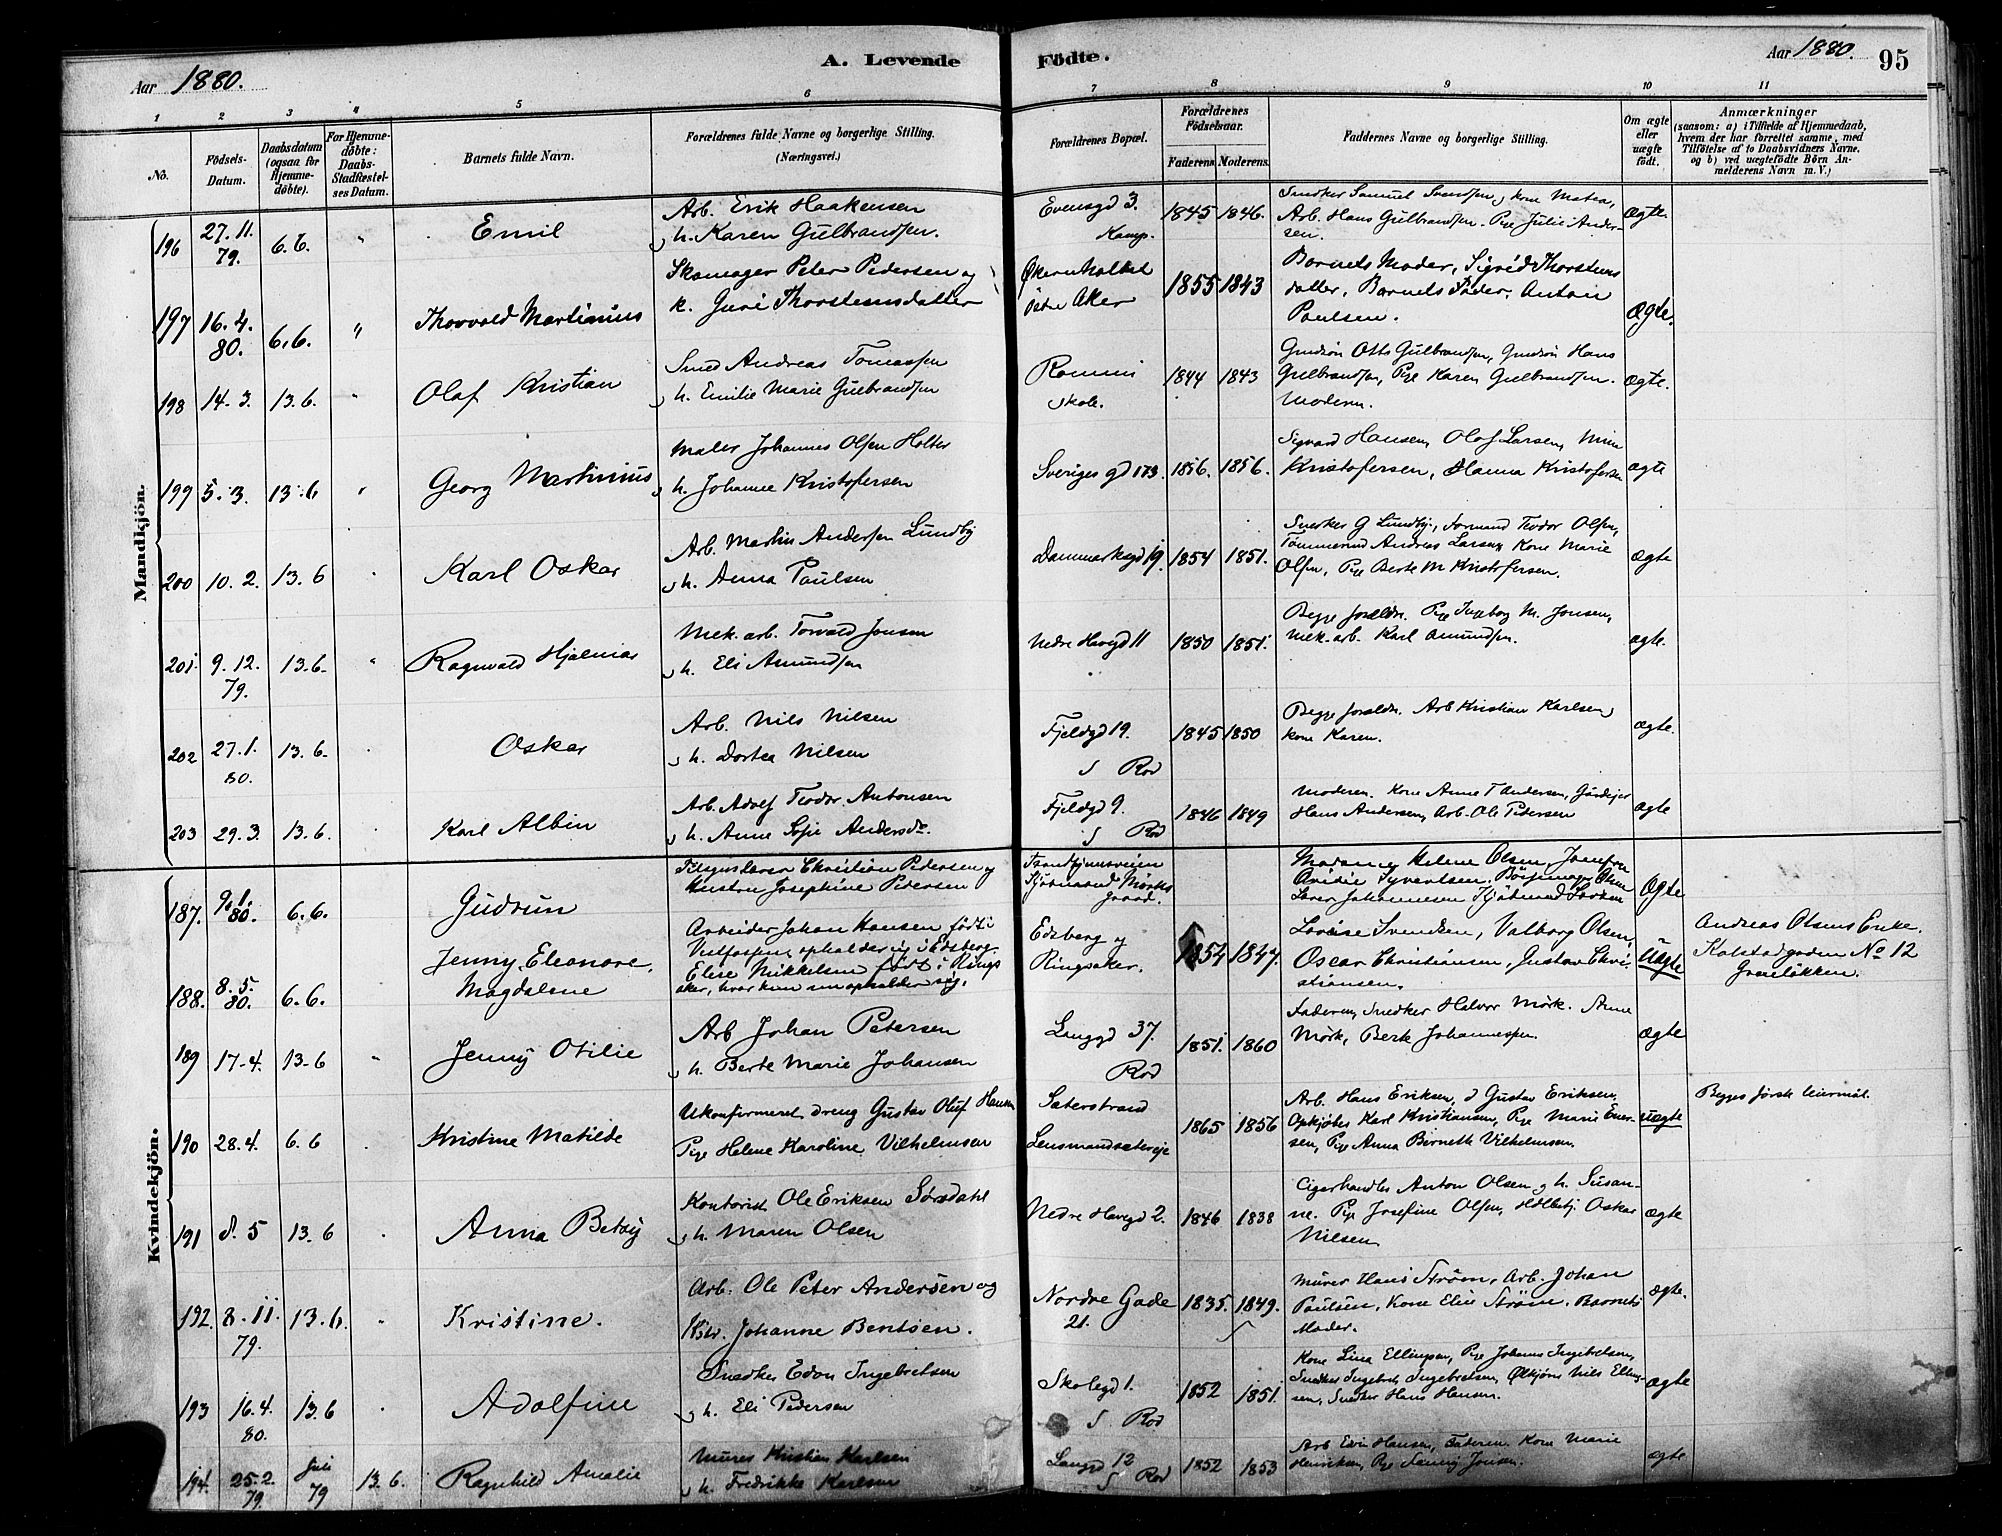 Aar 1880.
A. Levende
Födte.
Aar 1880.
95
1
2
3
4
5
6
7
8
9
10
11
No.
Födsels-
Datum.
Daabsdatum
(ogsaa for
Hjemme-
döbte).
For Hjemme-
döbte:
Daabs-
Stadfæstel-
ses Datum.
Barnets fulde Navn.
Forældrenes fulde Navne og borgerlige Stilling.
(Næringsvei.)
Forældrenes Bopæl.
Forældrenes
Födselsaar.
Faderens.
Moderens.
Faddernes Navne og borgerlige Stilling.
Om ægte
eller
uægte
födt.
Anmærkninger
(saasom: a) i Tilfælde af Hjemmedaab,
hvem der har forrettet samme, med
Tilföielse af to Daabsvidners Navne,
og b) ved uægtefödte Börn An-
melderens Navn m. V.)
Mandkjön.
196
27. 11.
79.
6.6.
"
Emil
Arb. Erik Haakensen
h. Karen Gulbrandsen.
Evensgd 3.
Kamp.
1845
1846.
Snedker Samuel Svendsen, kone Matea,
Arb. Hans Gulbrandsen. Pige Julie Ander-
sen.
Ægte.
197
16.4.
80.
6.6.
"
Thorvald Martinius
Skomager Peter Pedersen og
k. Guri Thorstensdatter
Østre Aker
1855
1843
Barnets Moder, Sigrid Thorstens
datter, Barnets Fader, Anton
Paulsen.
Ægte.
198
14. 3.
13.6.
"
Olaf Kristian
Smed Andreas Tomassen
h. Emilie Marie Gulbrandsen
skole.
1844
1843
Otto Gulbrandsen, Hans
Gulbrandsen, Pige Karen Gulbrandsen.
Moderen.
Ægte.
199
5. 3.
13.6
"
Georg Martinius
Maler Johannes Olsen Holter
h. Johanne Kristofersen
Sveriges gd 173
1856.
1856.
Sigvard Hansen, Olof Larsen,
Kristofersen, Hanna Kristofersen
ægte
200
10. 2.
13.6
"
Karl Oskar
Arb. Martin Andersen Lundby
h. Anna Paulsen
Danmarksgd 19.
1854
1851.
Snedker G Lundby, Formand Teodor Olsen,
Tømmermd Andreas Larsen, Kone Marie
Olsen, Pige Berte M Kristofersen.
ægte
201.
9. 12.
79.
13.6.
"
Ragnvald Hjalmar
Mek. arb. Torvald Jonsen
h. Eli Amundsen
Nedre Havegd 11
1850
1851.
Begge foreldre. Pige Ingeborg M. Jonsen,
Mek. arb. Karl Amundsen.
ægte.
202
27. 1.
80.
13.6.
Oskar
Arb. Nils Nilsen
h. Dortea Nilsen
Fjeldgd 19.
S Rod
1845
1850
Begge foreldre. Arb Kristian Karlsen,
kone Karen.
ægte.
203
29. 3.
13.6.
Karl Albin
Arb. Adolf Teodor Antonsen
h. Anne Sofie Andersdr.
Fjeldgd 9.
S Rod
1846
1849
Moderen. Kone Anne T Andersen, Gårdejer
Hans Andersen, Arb. Ole Pedersen
ægte
Kvindekjön.
187.
9.1.
80.
6.6.
Gudrun
Christian Pedersen og
Hustru Josephine Pedersen
Trondhjemsveien
Kjøbmand Mørks
Gaard.
Madam Helene Olsen, Jomfru
Syvertsen. Bøssemager Olsen
Johannesen Kjøbmand Larsen
Ægte
188.
8.5.
80.
6.6.
Jenny Eleonore
Magdalene
Arbeider Johan Hansen født i
opholder sig i Edsberg
Elise Mikkelsen født i Rings
aker, hvor hun nu opholder sig.
Edsberg og
Ringsaker.
1854
1847.
Lovise Svendsen, Valborg Olsen,
Oscar Christiansen, Gustav Chri-
stiansen.
Uægte
Andreas Olsens Enke.
No 12
Grønløkken.
189
17-4.
13-6
"
Jenny Otilie
Arb Johan Petersen
h. Berte Marie Johansen
Langgd 37.
Rod
1851.
1860
Faderen, Snedker Halvor Mørk. Anne
Mørk, Berte Johannessen.
ægte
190
28.4.
6.6
Kristine Matilde
Ukonfirmeret dreng Gustav Oluf Hansen
Pige Helene Karoline Vilhelmsen
Sæterstrand
1865
1856
Arb. Hans Eriksen, d Gustav Eriksen,
Opkjøber Karl Kristiansen, Pige Marie Ever-
sen, Pige Anna Birnette Vilhelmsen.
uægte
Begges første leiermål.
191
8. 5
13-6
Anna Betsy
Kontorist Ole Eriksen Sørsdahl
h. Maren Olsen
Nedre Havegd 2.
1846
1838
Cigarhandler Anton Olsen, h. Susan-
ne. Pige Josefine Olsen, Hdlbetj. Oskar
Nilsen
ægte
192.
8. 11.
79.
13.6.
"
Kristine.
Arb. Ole Peter Andersen og
Hstr. Johanne Bentsen.
Nordre Gade
21.
1835.
1849.
Murer Hans Strøm, Arb. Johan
Paulsen, Kone Elin Strøm. Barnets
Moder.
ægte.
193
16.4.
80.
13.6
Adolfine
Snedker Edon Ingebretsen
h. Eli Pedersen
Skolegd 1.
S Rod
1852
1851.
Kone Lina Ellingsen, Pige Johanne Ingebretsen,
Snedker Ingebret Ingebretsen, Ølkjører Nils Elling-
sen, Snedker Hans Hansen.
ægte
194.
25.2.
79.
Juli
79
13.6.
Ragnhild Amalie
Murer Kristian Karlsen
h. Fredrikke Karlsen
Langgd 12
S Rod
1852
1853
Arb Even Hansen, Faderen. Kone Marie
Henriksen, Pige Fanny Jonsen.
ægte